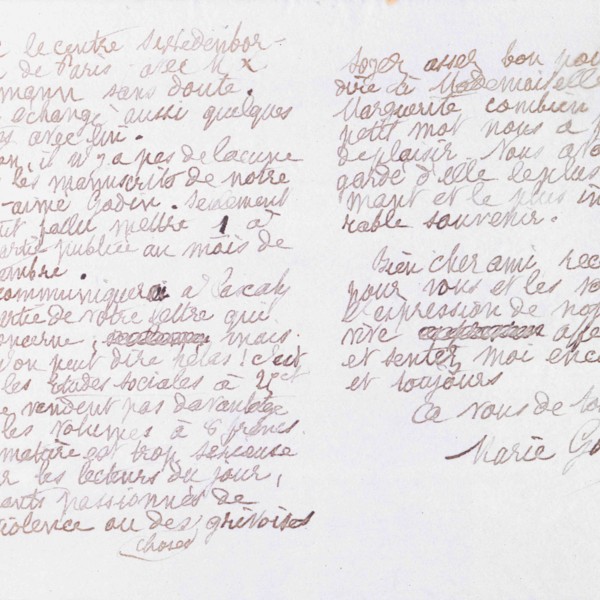 le centre Swedenbor-
de Paris avec M x
mann sans doute.
échangé aussi quelques
avec lui.
on, il n'y a pas de lacune
les manuscrits de notre
-aimé Godin. Seulement
fallu mettre 1 à
partie publiée au mois de
embre.
communiquerai a Pascaly
partie de votre lettre qui
concerne, mais
on peut dire hélas! c'est
les Etudes sociales à
vendent pas davantage
les volumes à 8 francs.
matière est trop sérieuse
les lecteurs du jour,
passionnés de
violence ou des grivoises
choses
Soyez assez bon pour
dire à Mademoiselle
Marguerite combien
petit mot nous a
de plaisir. Nous
gardé d'elle le plus
mant et le plus
rable souvenir.
Bien cher ami
pour vous et les
l'expression de
vive
et sentez moi
et toujours
Ca vous de
Marie